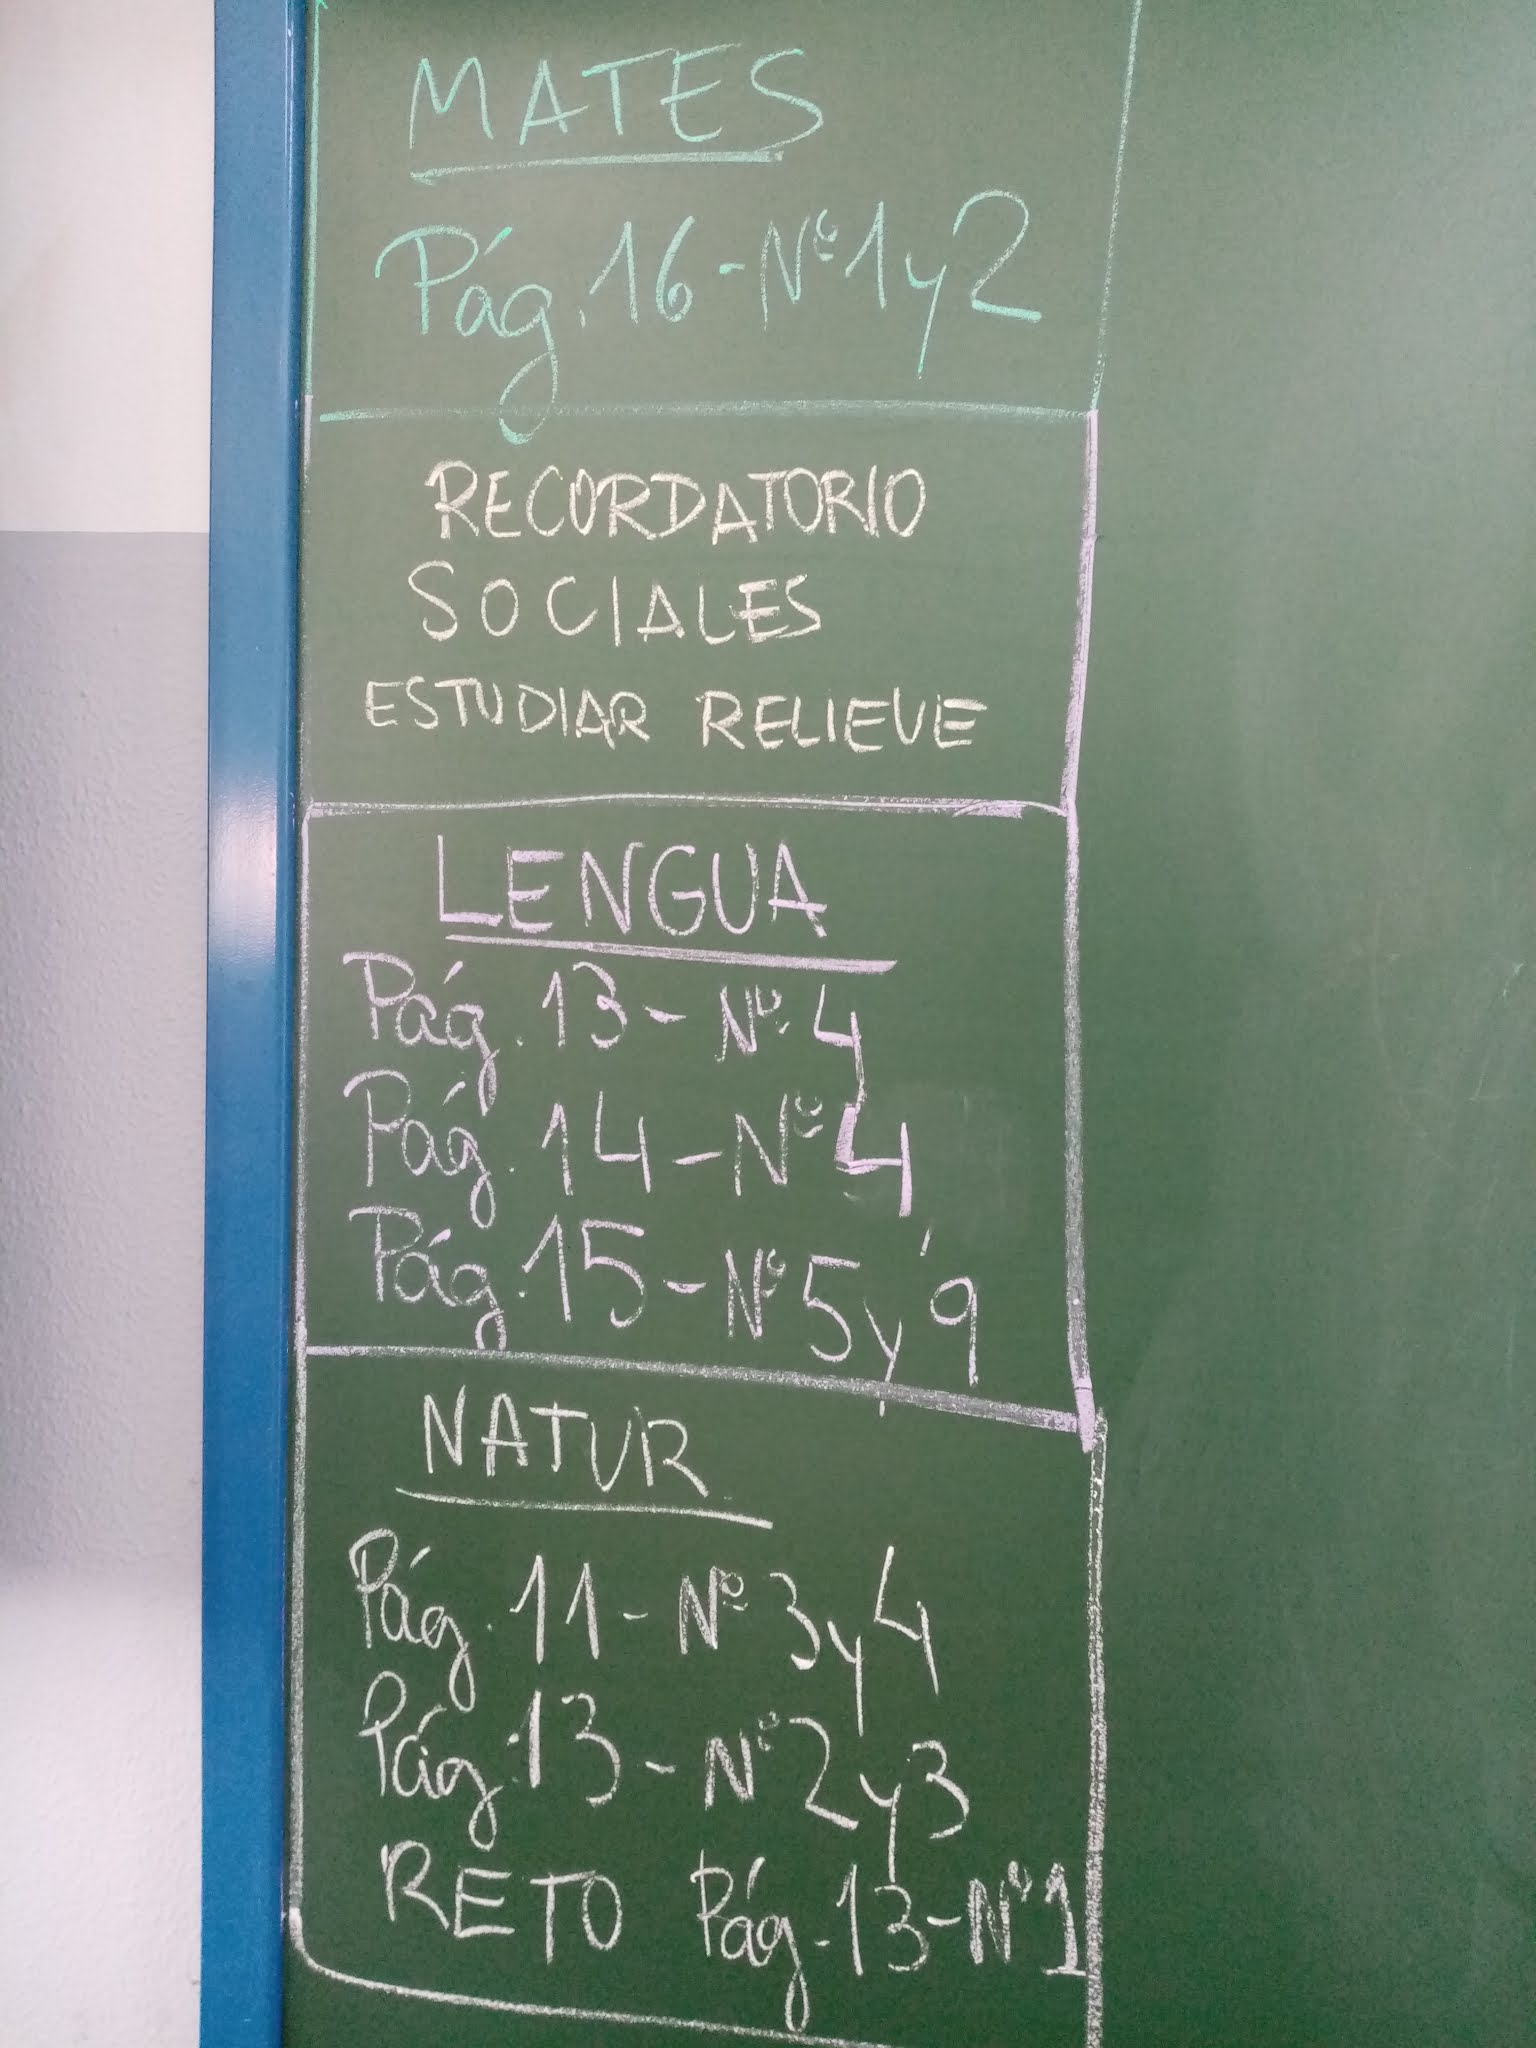 MATES
Pág. 16 - Nº 1 y 2
RECORDATORIO
SOCIALES
ESTUDIAR RELIEVE
LENGUA
Pág. 13 - Nº 4
Pág. 14 - Nº 4
Pág. 15 - Nº 5 y 9
NATUR
Pág. 11 - Nº 3 y 4
Pág. 13 - Nº 2 y 3
RETO Pág. 13 - Nº 1